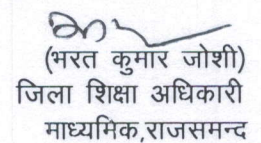 (भरत कुमार जोशी)
जिला शिक्षा अधिकारी
माध्यमिक,राजसमन्द